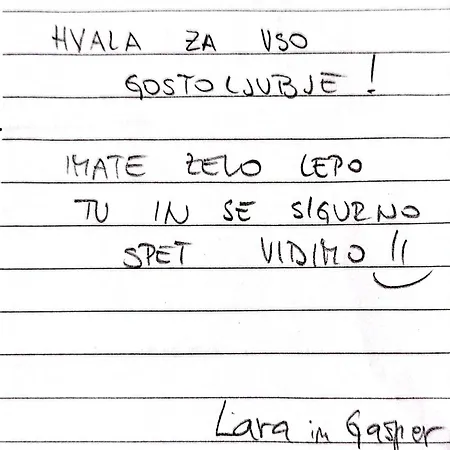 HVALA ZA VSO
GOSTOLJUBJE!
IMATE ZELO LEPO
TU IN SE SIGURNO
SPET VIDIMO !!
Lara in Gasper